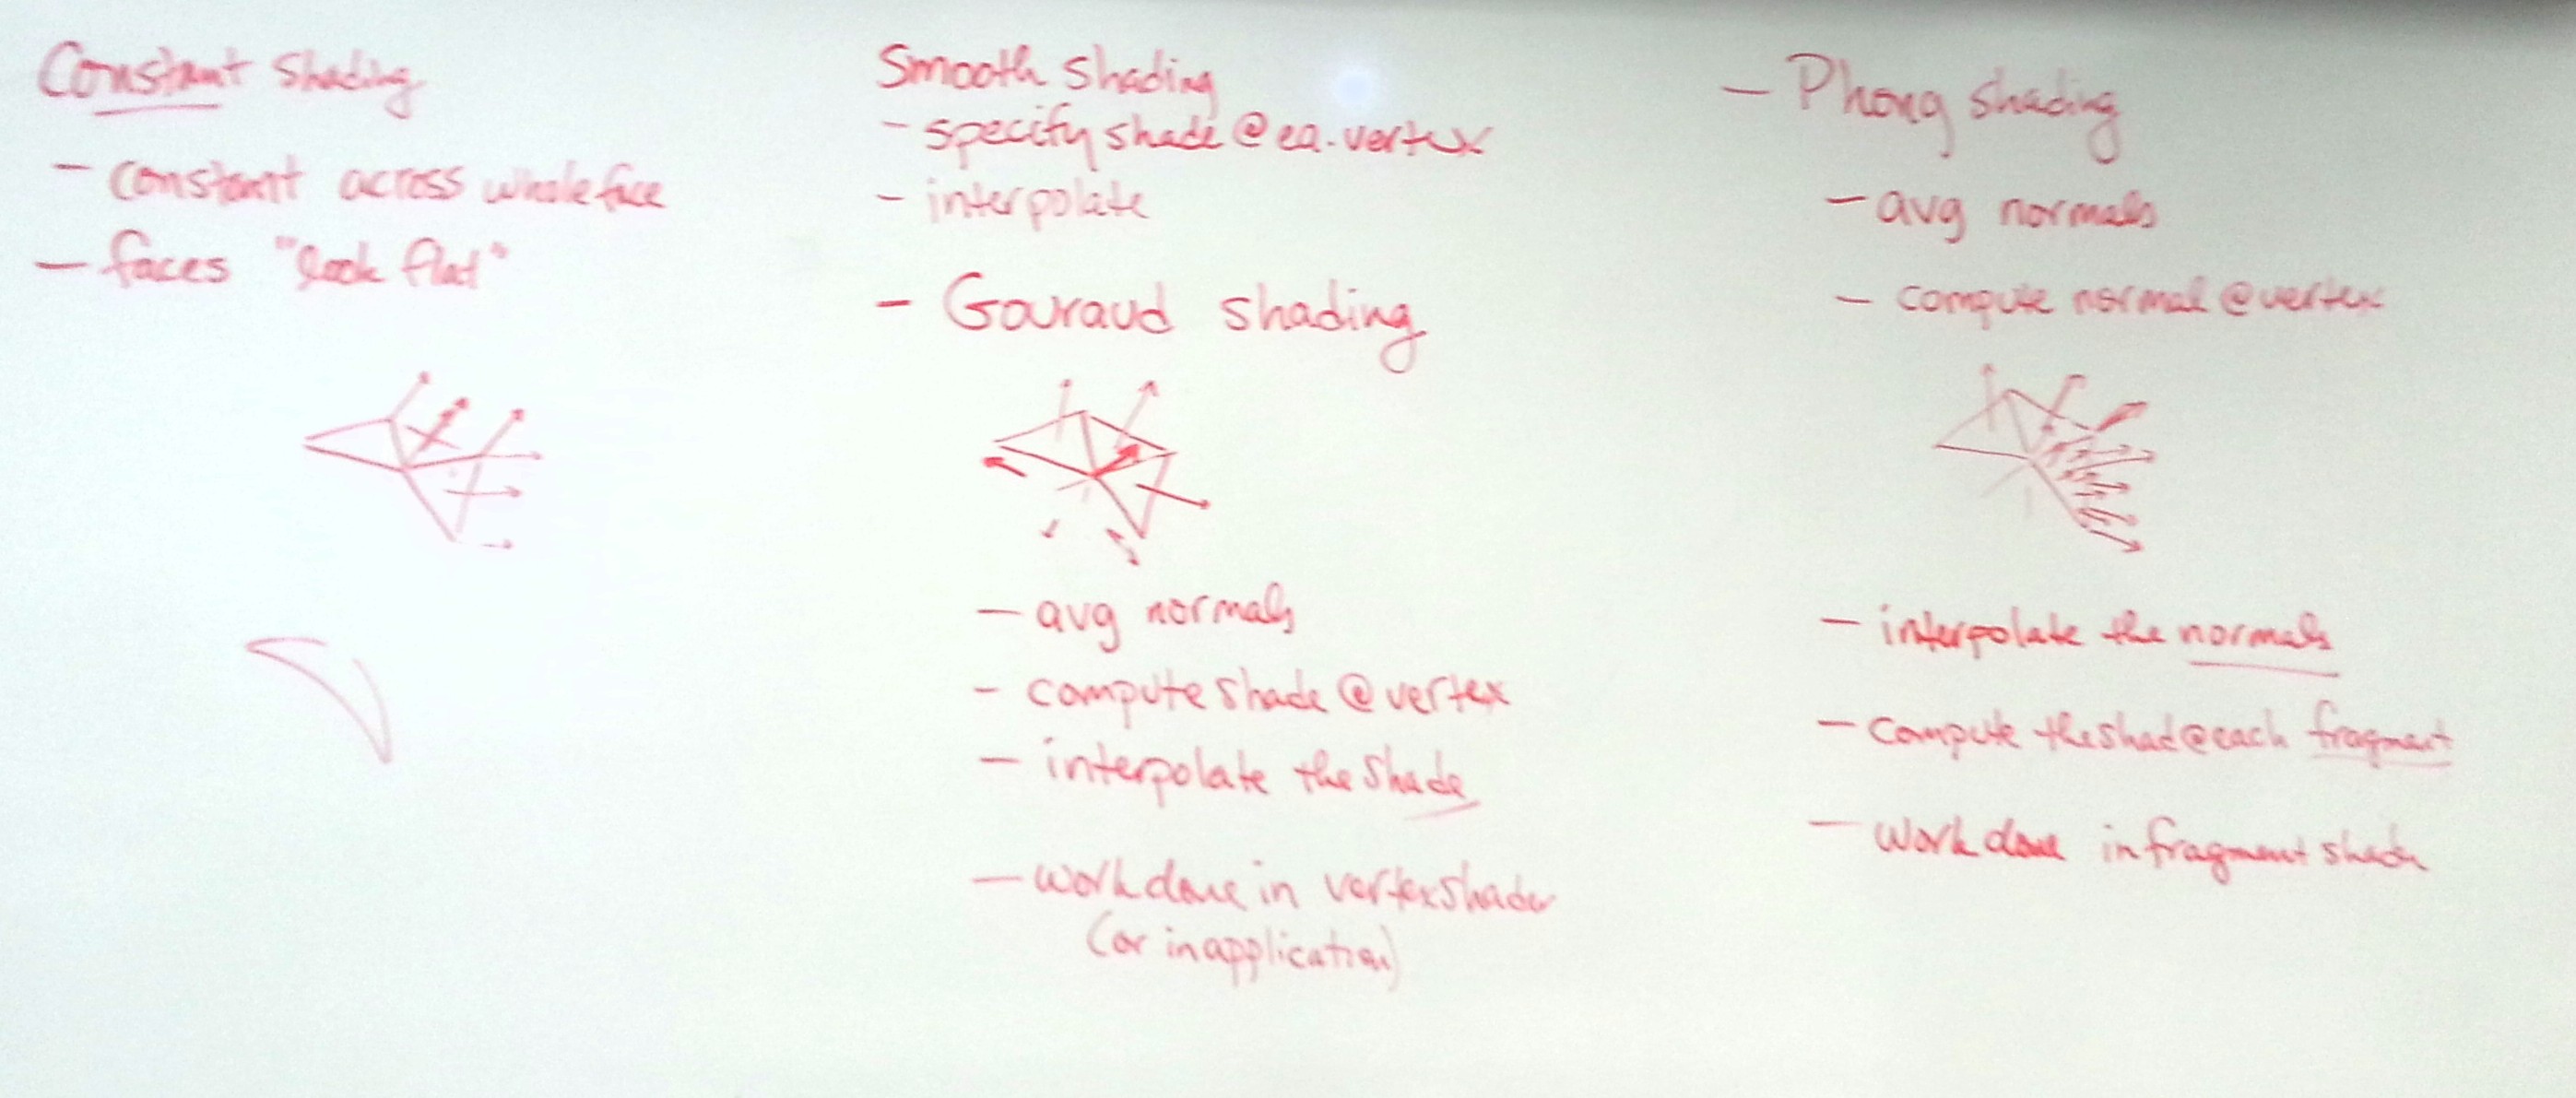 Constant Shading
- constant across whole face
- faces "look flat"
Smooth Shading
- specify shade @ ea. vertex
- interpolate
- Gouraud shading
- avg normals
- compute shade @ vertex
- interpolate the shade
- work done in vertex shader
(or in application)
- Phong shading
- avg normals
- compute normal @ vertex
- interpolate the normals
- compute the shad @ each fragment
- work done in fragment shader